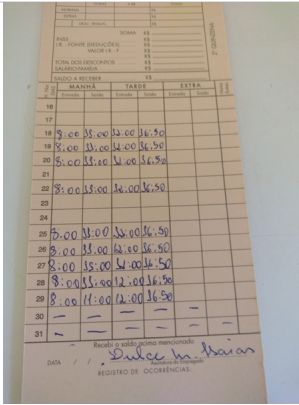 SOMA R$
INSS R$
I.R. - FONTE (DEDUÇÕES) R$
VALOR I.R. F R$
TOTAL DOS DESCONTOS R$
SALÁRIO-FAMÍLIA R$
SALDO A RECEBER R$
2ª QUINZENA
MANHÃ TARDE EXTRA
Entrada Saída Entrada Saída Entrada Saída
16
17
18 8:00 11:00 12:00 16:50
19 8:00 11:00 12:00 16:50
20 8:00 11:00 12:00 16:50
21
22 8:00 11:00 12:00 16:50
23
24
25 8:00 11:00 12:00 16:50
26 8:00 11:00 12:00 16:50
27 8:00 11:00 12:00 16:50
28 8:00 11:00 12:00 16:50
29 8:00 11:00 12:00 16:50
30 — — — —
31 — — — —
Recebi o saldo acima mencionado
Dulce M. Isaias
DATA / / Assinatura do Empregado
REGISTRO DE OCORRÊNCIAS